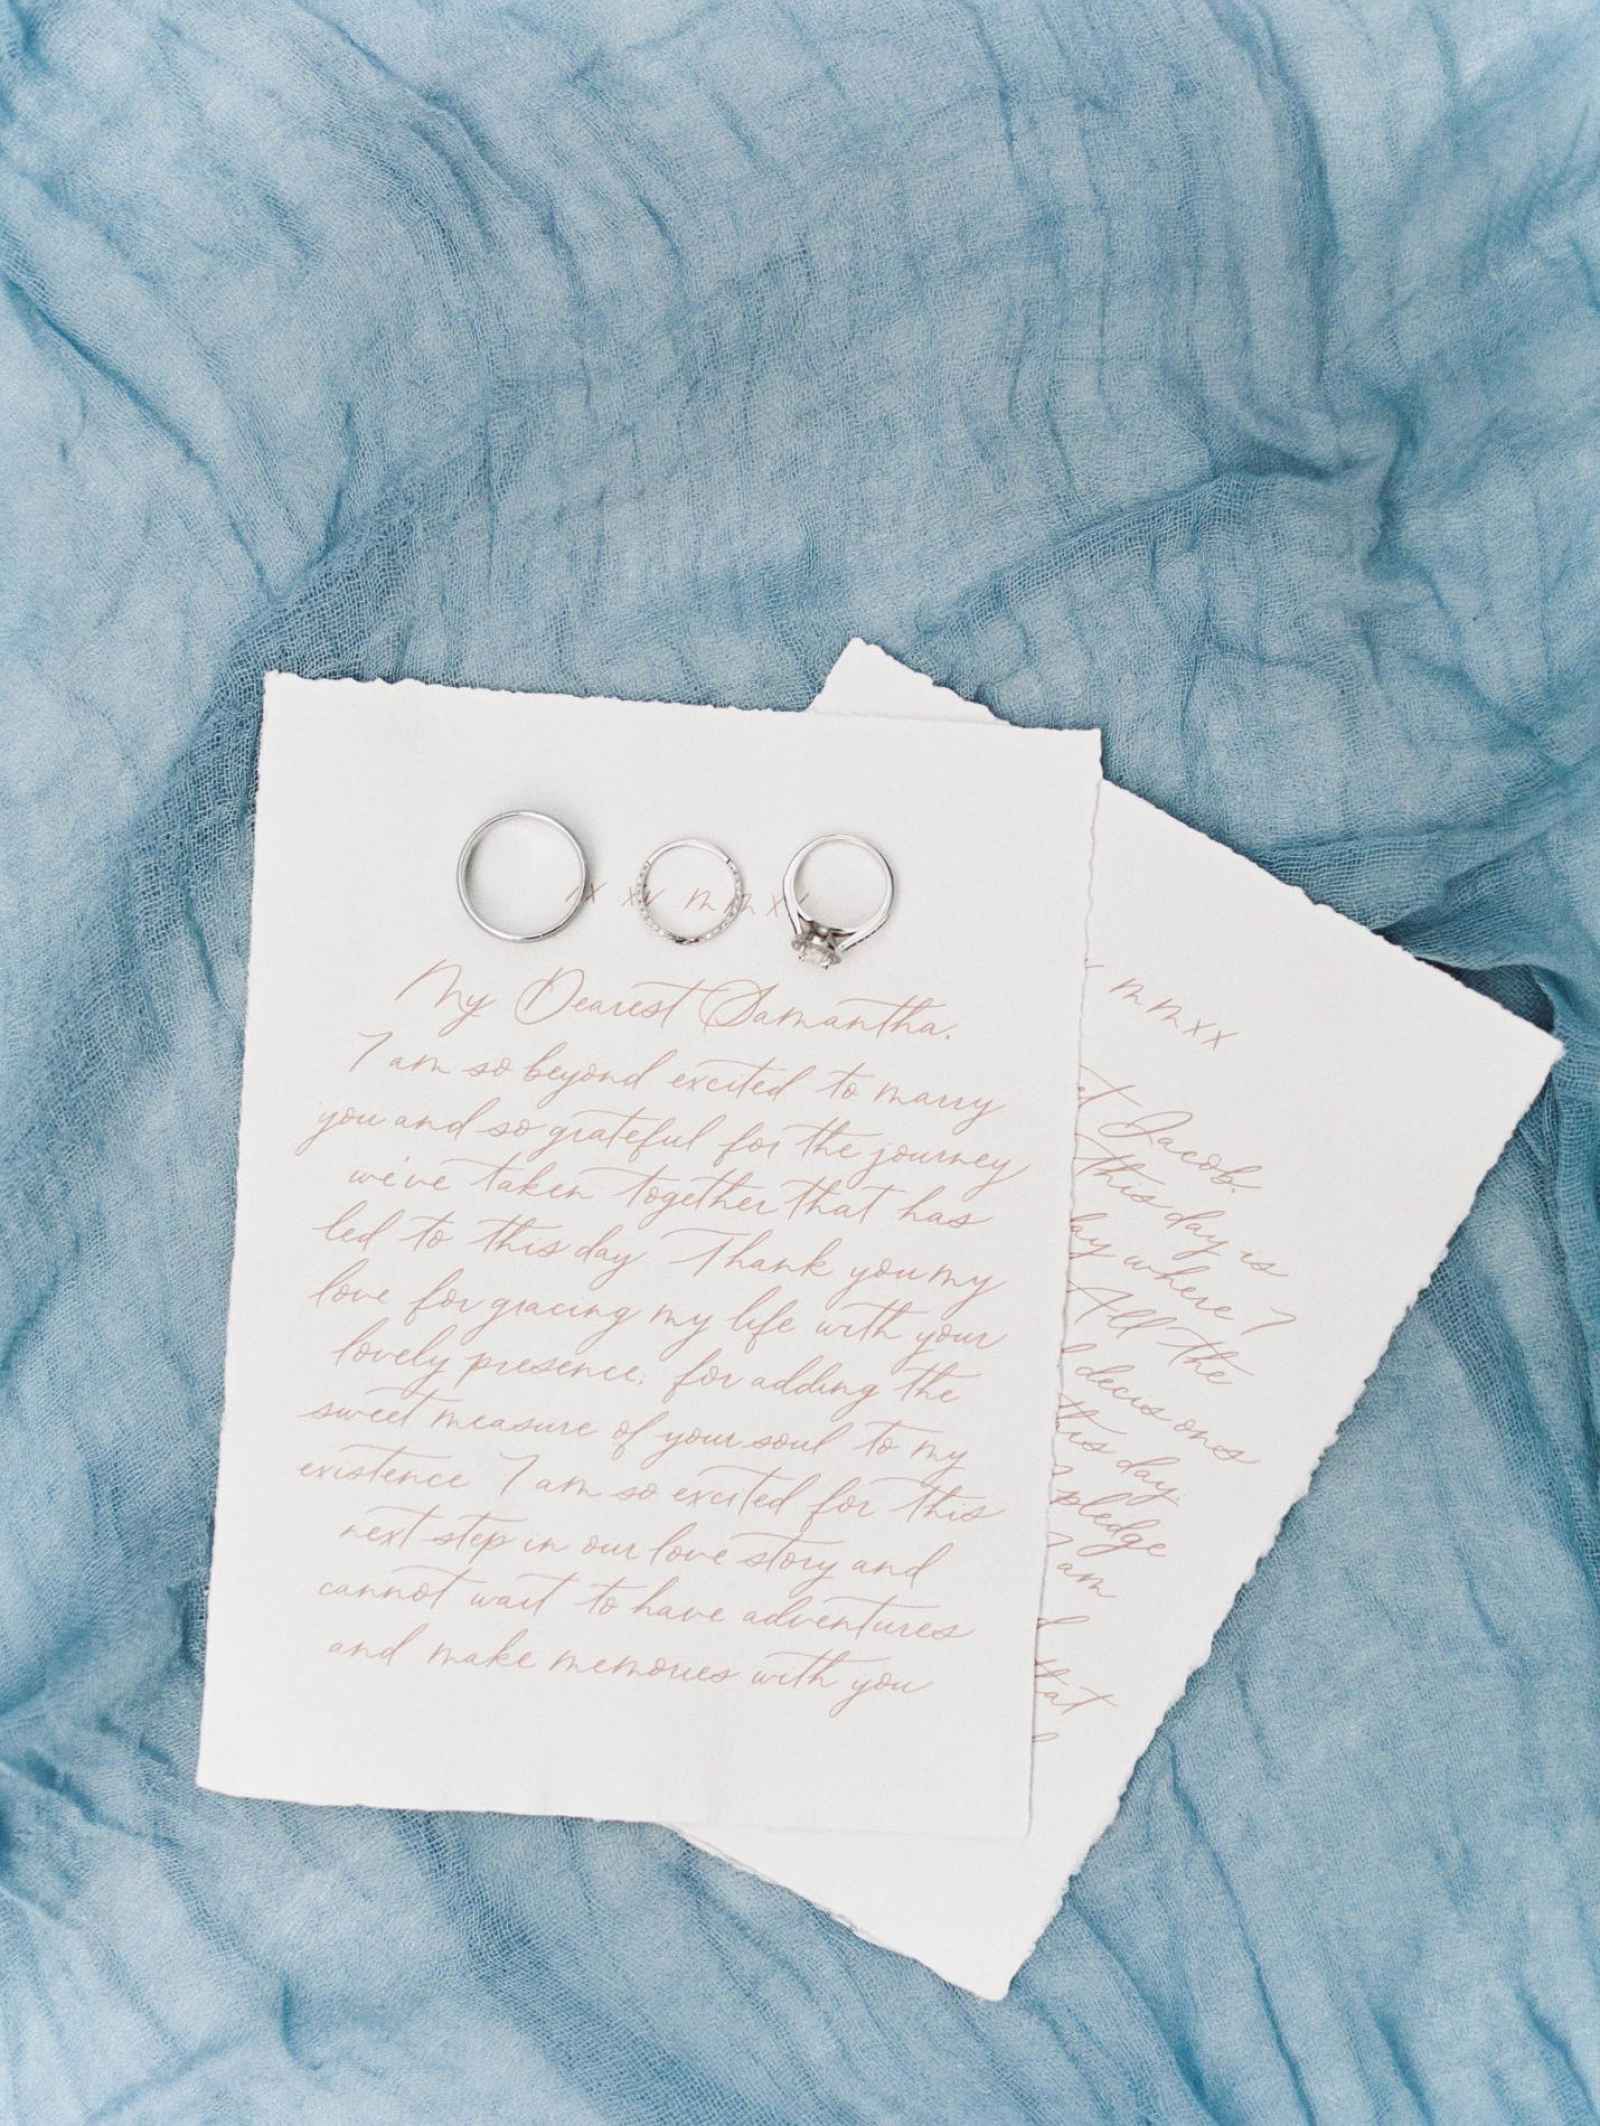 xx xv mmxx
My Dearest Samantha,
I am so beyond excited to marry
you and so grateful for the journey
we've taken together that has
led to this day Thank you my
love for gracing my life with your
lovely presence, for adding the
sweet measure of your soul to my
existence I am so excited for this
next step in our love story and
cannot wait to have adventures
and make memories with you
mmxx
Jacob,
This day is
day where I
All the
decisions
this day.
pledge
I am
that